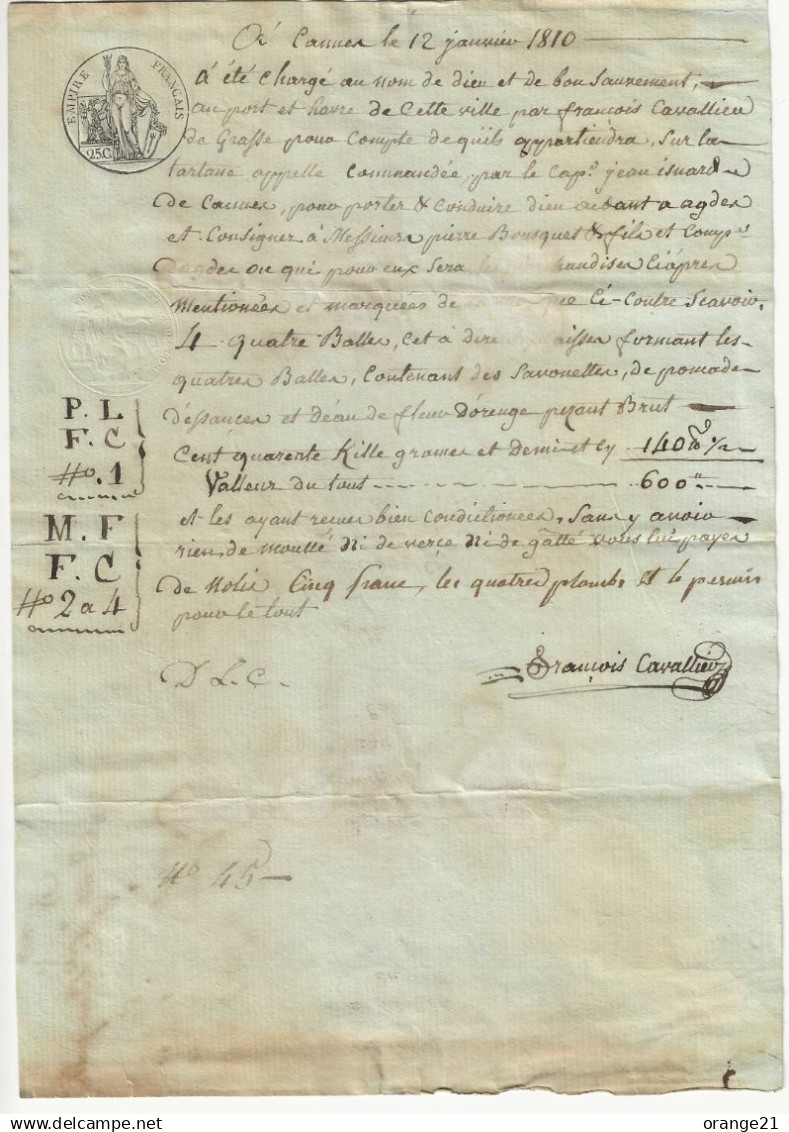 A Cannes le 12 janvier 1810
EMPIRE FRANÇAIS
25.C.
à été chargé au nom de dieu et de bon sauvement,
au port et havre de Cette ville par françois Cavallier
de Grasse pour Compte de qu'ils appartiendra, sur la
tartane appelle Commandée, par le Cap.e jean isnard
de Cannes, pour porter & Conduire dieu aidant a agdes
et Consigner à Messieurs pierre Bousquet & fils et Comp.e
dagde ou qui pour eux sera les handises Ciàprés
Mentionées et marquées de Ci-Contre Scavoir.
4 quatre Balles, cet à dire aisses formant les
quatres Balles, Contenant des Savonettes, de pomade
P. L
F. C
No. 1
d'essances et Déau de fleur Dórenge pezant Brut
Cent quarente Kille grames et demi et Cy 140 ko 1/2
Valleur du tout 600"
M. F
F. C
No 2 a 4
et les ayant reçues bien Condictionées, Sans y avoir
rien, de mouillé Ni de versé Ni de gatté vous lui payes
de Nolis Cinq franc, les quatres plombs et le permis
pour le tout
D L. C.
François Cavallier
No 45
delcampe.net
orange21